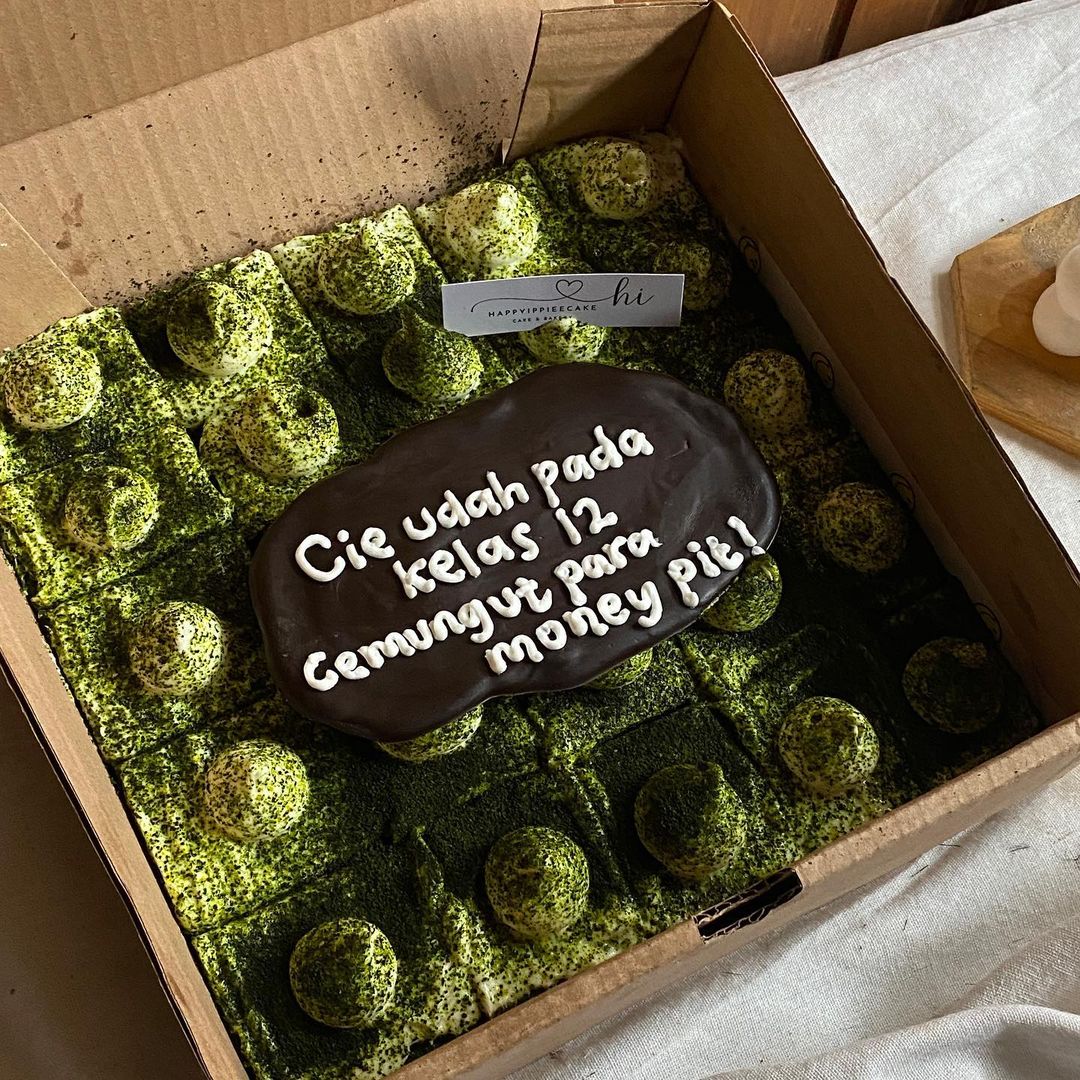 hi
HAPPYIPPIEECAKE
CAKE & BAKERY
Cie udah pada
kelas 12
cemungut para
money pit!